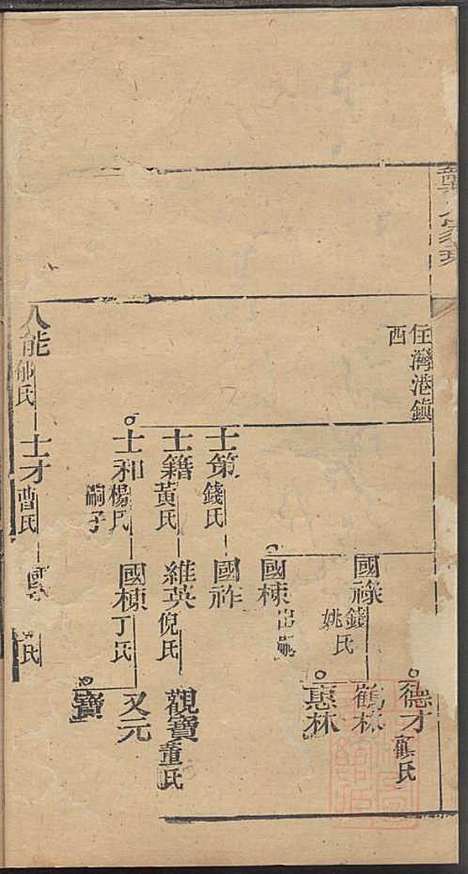 住灣港鎮
西
德才顧氏
國祿錢氏
姚氏
鶴林
國棟出嗣
惠林
士策錢氏
國祚
士籍黃氏
維英倪氏
觀寶董氏
士和楊氏
嗣子
國棟丁氏
又元
寶
人能郁氏
士才曹氏
國
氏